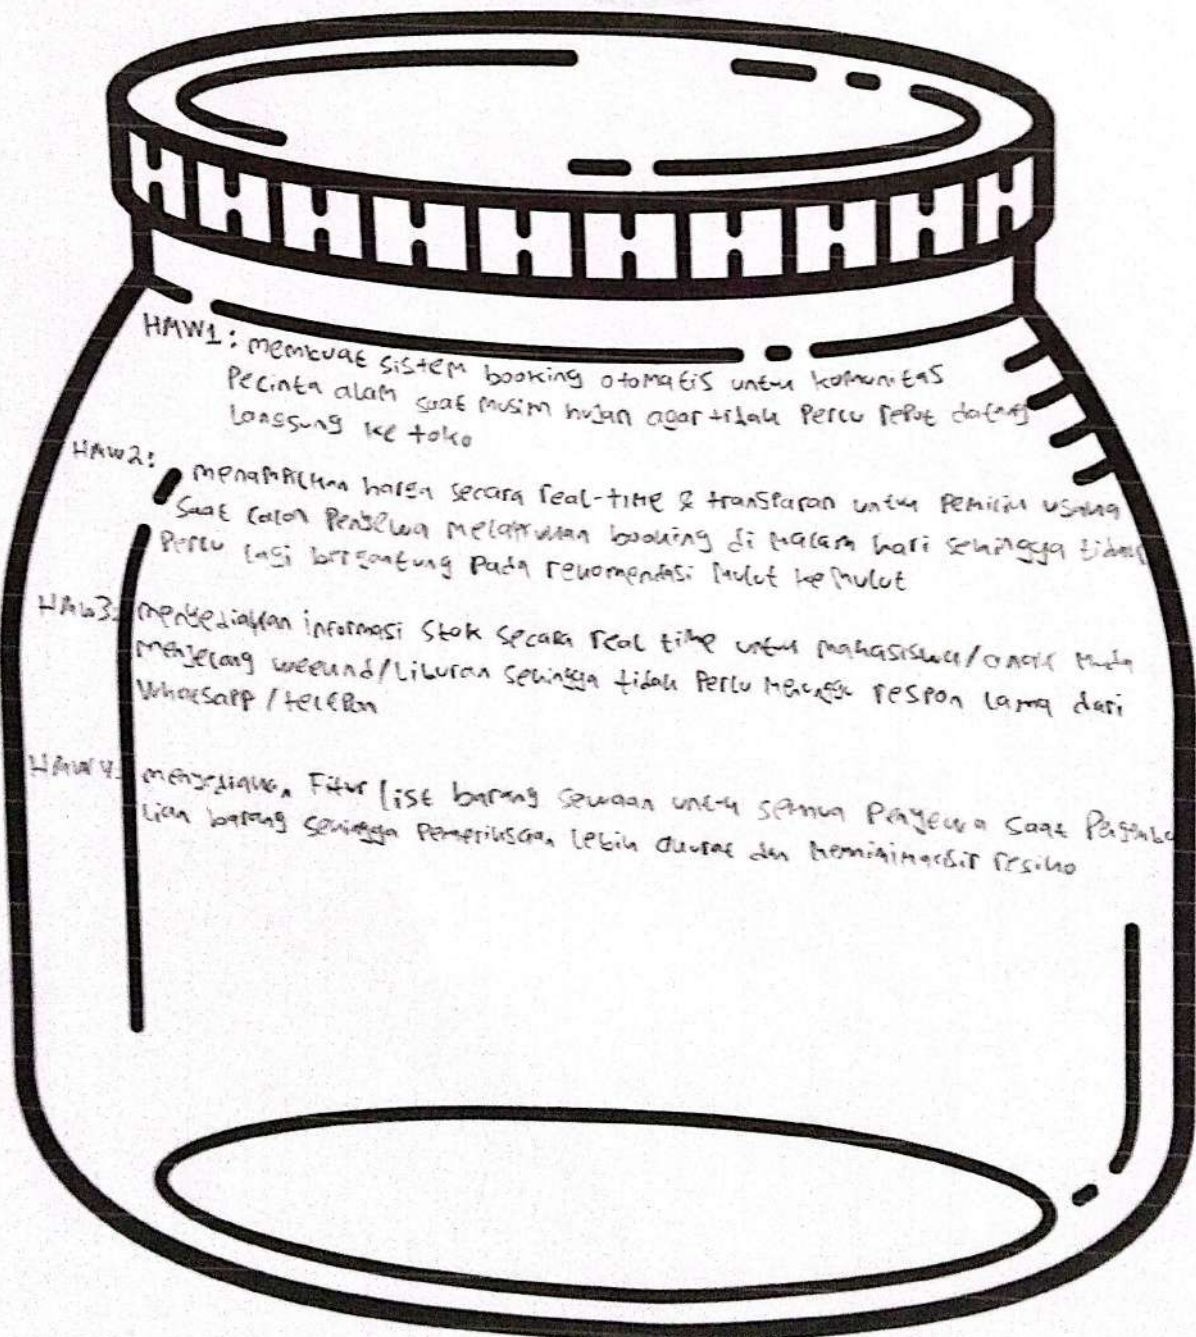 HMW1: membuat sistem booking otomatis untuk komunitas
Pecinta alam saat musim hujan agar tidak Perlu repot datang
langsung ke toko
HMW2: menampilkan harga secara real-time & transparan untuk pemilik usaha
Saat calon Penyewa melakukan booking di malam hari sehingga tidak
Perlu lagi bergantung Pada rekomendasi mulut ke mulut
HMW3: menyediakan informasi Stok secara real time untuk mahasiswa/anak muda
menjelang weekend/Liburan sehingga tidak Perlu menunggu respon lama dari
Whatsapp / telepon
HMW4: menyediakan Fitur list barang sewaan untuk semua Penyewa saat Pengemba
lian barang sehingga Pemeriksaan lebih akurat dan meminimalisir resiko